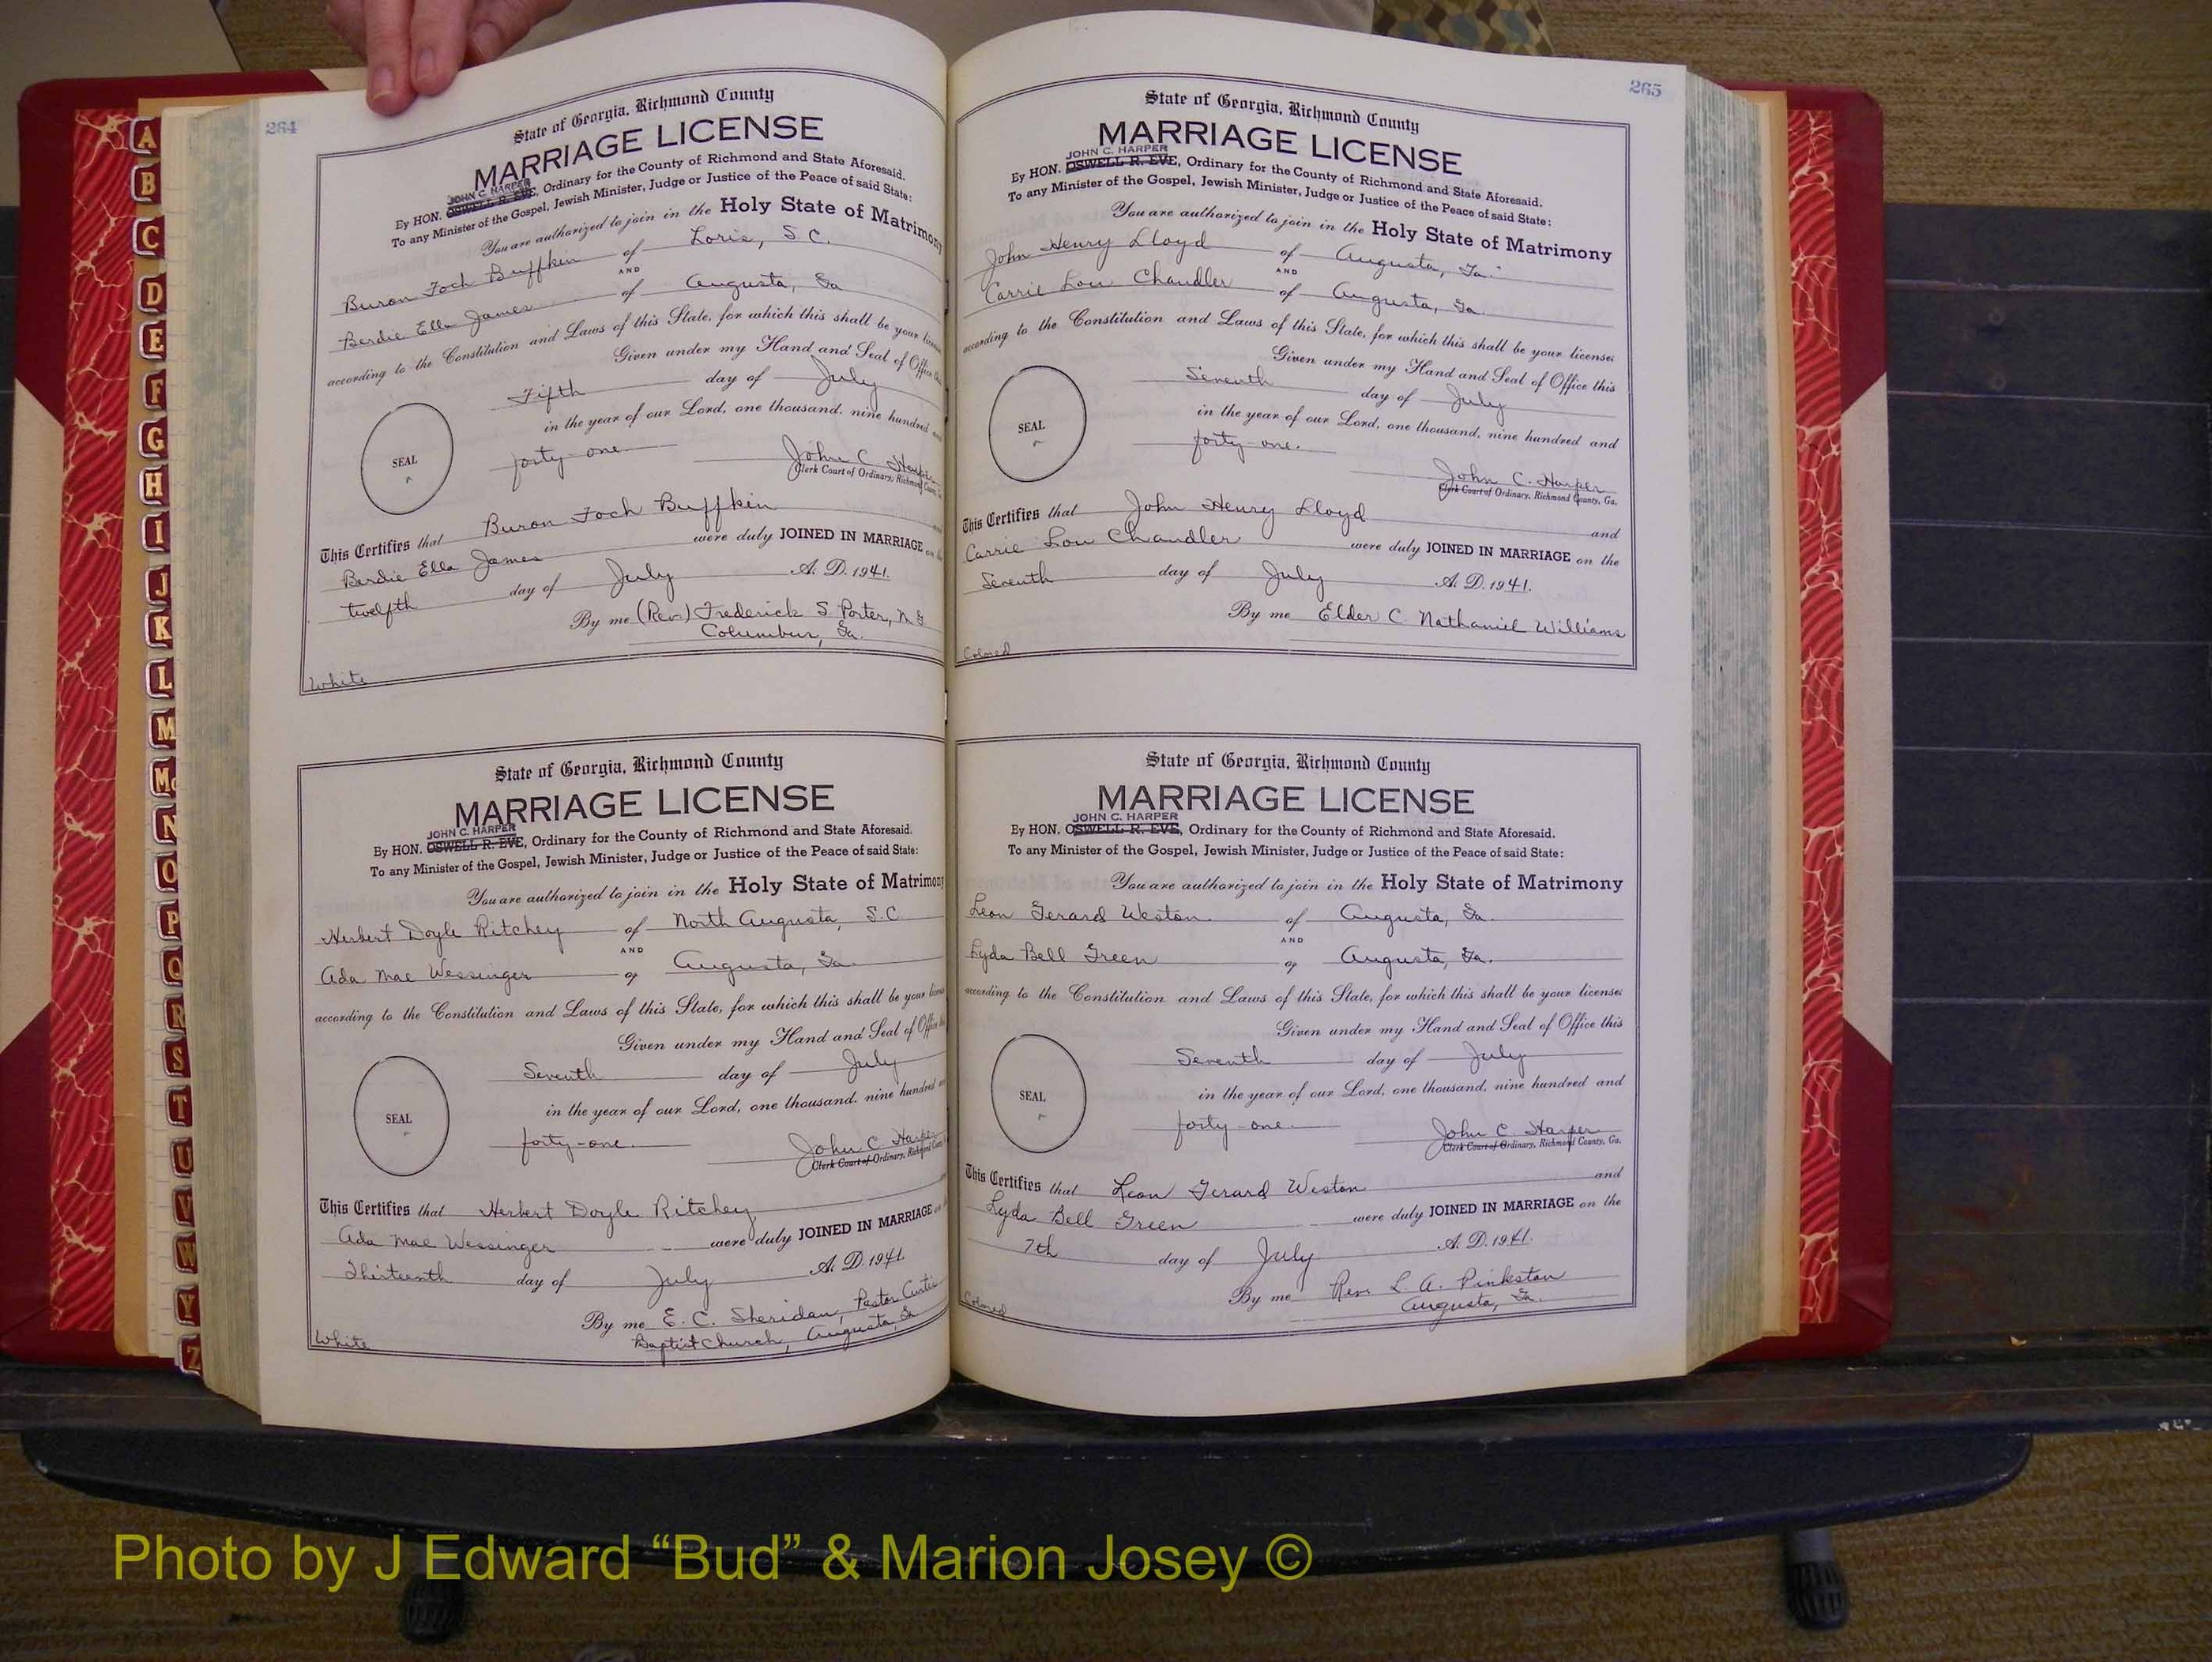 264
State of Georgia, Richmond County
MARRIAGE LICENSE
JOHN C. HARPER
By HON. OSWELL R. EVE, Ordinary for the County of Richmond and State Aforesaid.
To any Minister of the Gospel, Jewish Minister, Judge or Justice of the Peace of said State:
You are authorized to join in the Holy State of Matrimony
Buron Foch Buffkin of Loris, S. C.
AND
Berdie Ella James of Augusta, Ga
according to the Constitution and Laws of this State, for which this shall be your license
Given under my Hand and Seal of Office this
Fifth day of July
in the year of our Lord, one thousand, nine hundred and
forty-one.
SEAL
John C. Harper
Clerk Court of Ordinary, Richmond County, Ga.
This Certifies that Buron Foch Buffkin and
Berdie Ella James were duly JOINED IN MARRIAGE on the
twelfth day of July A. D. 1941.
By me (Rev.) Frederick S. Porter,
Columbus, Ga.
White
State of Georgia, Richmond County
MARRIAGE LICENSE
JOHN C. HARPER
By HON. OSWELL R. EVE, Ordinary for the County of Richmond and State Aforesaid.
To any Minister of the Gospel, Jewish Minister, Judge or Justice of the Peace of said State:
You are authorized to join in the Holy State of Matrimony
Herbert Doyle Ritchey of North Augusta, S.C
AND
Ada Mae Wessinger of Augusta, Ga.
according to the Constitution and Laws of this State, for which this shall be your license
Given under my Hand and Seal of Office this
Seventh day of July
in the year of our Lord, one thousand, nine hundred and
forty-one.
SEAL
John C. Harper
Clerk Court of Ordinary, Richmond County
This Certifies that Herbert Doyle Ritchey
Ada Mae Wessinger were duly JOINED IN MARRIAGE on
Thirteenth day of July A. D. 1941.
By me E. C. Sheridan, Pastor Curtis
Baptist Church, Augusta, Ga
White
265
State of Georgia, Richmond County
MARRIAGE LICENSE
JOHN C. HARPER
By HON. OSWELL R. EVE, Ordinary for the County of Richmond and State Aforesaid.
To any Minister of the Gospel, Jewish Minister, Judge or Justice of the Peace of said State:
You are authorized to join in the Holy State of Matrimony
John Henry Lloyd of Augusta, Ga.
AND
Carrie Lou Chandler of Augusta, Ga.
according to the Constitution and Laws of this State, for which this shall be your license
Given under my Hand and Seal of Office this
Seventh day of July
in the year of our Lord, one thousand, nine hundred and
forty-one.
SEAL
John C. Harper
Clerk Court of Ordinary, Richmond County, Ga.
This Certifies that John Henry Lloyd and
Carrie Lou Chandler were duly JOINED IN MARRIAGE on the
Seventh day of July A. D. 1941.
By me Elder C. Nathaniel Williams
Colored
State of Georgia, Richmond County
MARRIAGE LICENSE
JOHN C. HARPER
By HON. OSWELL R. EVE, Ordinary for the County of Richmond and State Aforesaid.
To any Minister of the Gospel, Jewish Minister, Judge or Justice of the Peace of said State:
You are authorized to join in the Holy State of Matrimony
Leon Gerard Weston of Augusta, Ga.
AND
Lyda Bell Green of Augusta, Ga.
according to the Constitution and Laws of this State, for which this shall be your license
Given under my Hand and Seal of Office this
Seventh day of July
in the year of our Lord, one thousand, nine hundred and
forty-one.
SEAL
John C. Harper
Clerk Court of Ordinary, Richmond County, Ga.
This Certifies that Leon Gerard Weston and
Lyda Bell Green were duly JOINED IN MARRIAGE on the
7th day of July A. D. 1941.
By me Rev. L. A. Pinkston
Augusta, Ga.
Colored
A
B
C
D
E
F
G
H
I
J
K
L
M
Mc
N
O
P
Q
R
S
T
U
V
W
Y
Z
Photo by J Edward “Bud” & Marion Josey ©